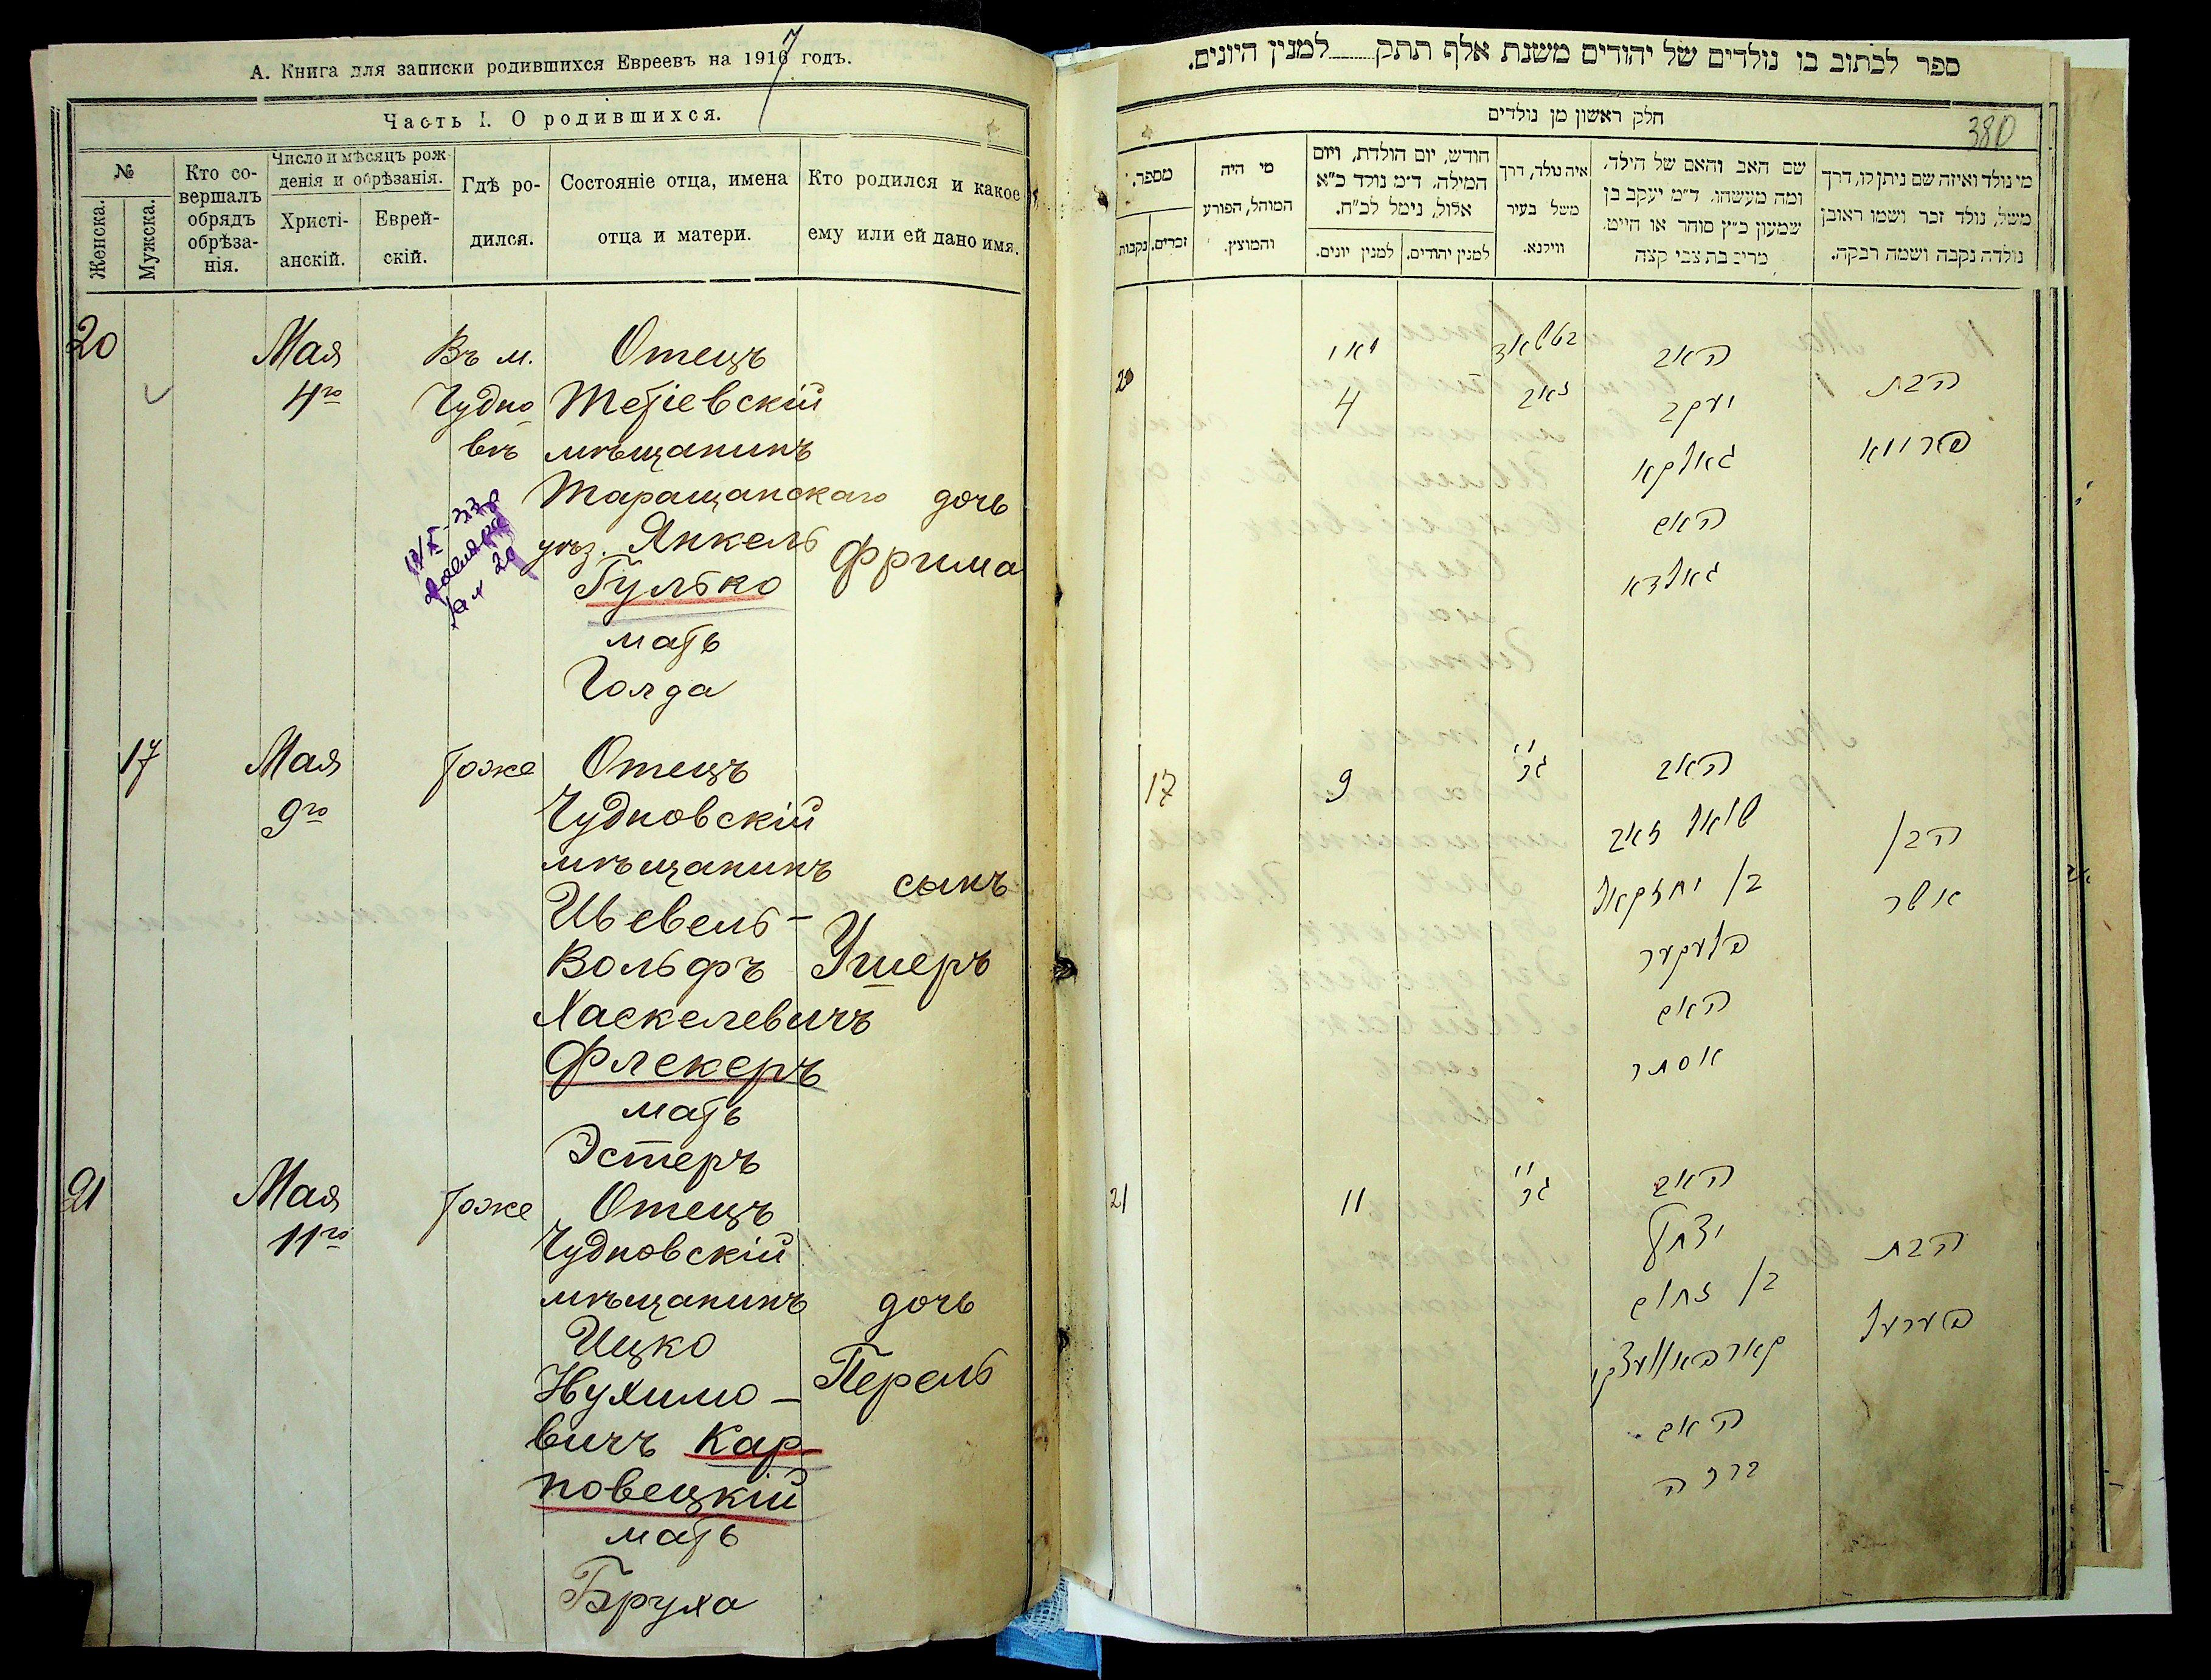 А. Книга для записки родившихся Евреевъ на 1917 годъ.
Часть I. О родившихся.
№
Женска.
Мужска.
Кто совершалъ обрядъ обрѣзанія.
Число и мѣсяцъ рожденія и обрѣзанія.
Христіанскій.
Еврейскій.
Гдѣ родился.
Состояніе отца, имена отца и матери.
Кто родился и какое ему или ей дано имя.
20
Мая
4го
Въ м.
Чудновѣ
Отецъ
Тетіевскій
мѣщанинъ
Таращанскаго
уѣз. Янкель
Гулько
мать
Голда
дочь
Фрима
17
Мая
9го
тоже
Отецъ
Чудновскій
мѣщанинъ
Шевель-
Вольфъ
Хаскелевичъ
Флекеръ
мать
Эстеръ
сынъ
Ушеръ
21
Мая
11го
тоже
Отецъ
Чудновскій
мѣщанинъ
Ицко
Нухимо-
вичъ Кар
повецкій
мать
Бруха
дочь
Перель
ספר לכתוב בו נולדים של יהודים משנת אלף תתק למנין היונים.
380
חלק ראשון מן נולדים
מספר.
נקבות
זכרים.
מי היה
המוהל, הפורע
והמוצץ.
חודש, יום הולדת, ויום
המילה. ד״מ נולד כ״א
אלול, נימל לכ״ח.
למנין יונים.
למנין יהודים.
איה נולד, דרך
משל בעיר
ווילנא.
שם האב והאם של הילד,
ומה מעשהו. ד״מ יעקב בן
שמעון כ״ץ סוחר או חייט.
מרים בת צבי קצה
מי נולד ואיזה שם ניתן לו, דרך
משל, נולד זכר ושמו ראובן
נולדה נקבה ושמה רבקה.
20
מאי
4
האב
יעקב
גאלקא
האם
גאלדא
הבת
פרומא
17
9
האב
שאול זאב
בן יחזקאל
פלעקער
האם
אסתר
הבן
אשר
21
11
האב
יצחק
בן נחום
קארפאוועצקי
האם
ברכה
הבת
פערעל